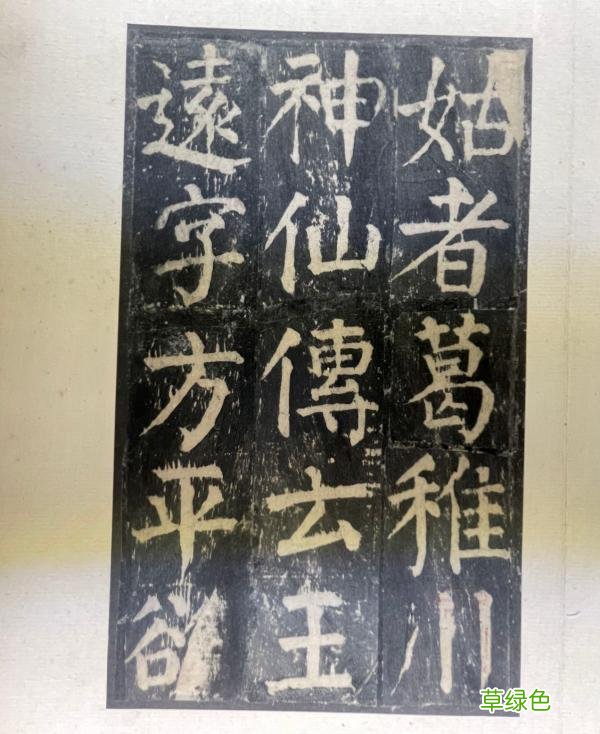 姑者葛稚川
神仙傳云王
遠字方平欲
草绿色